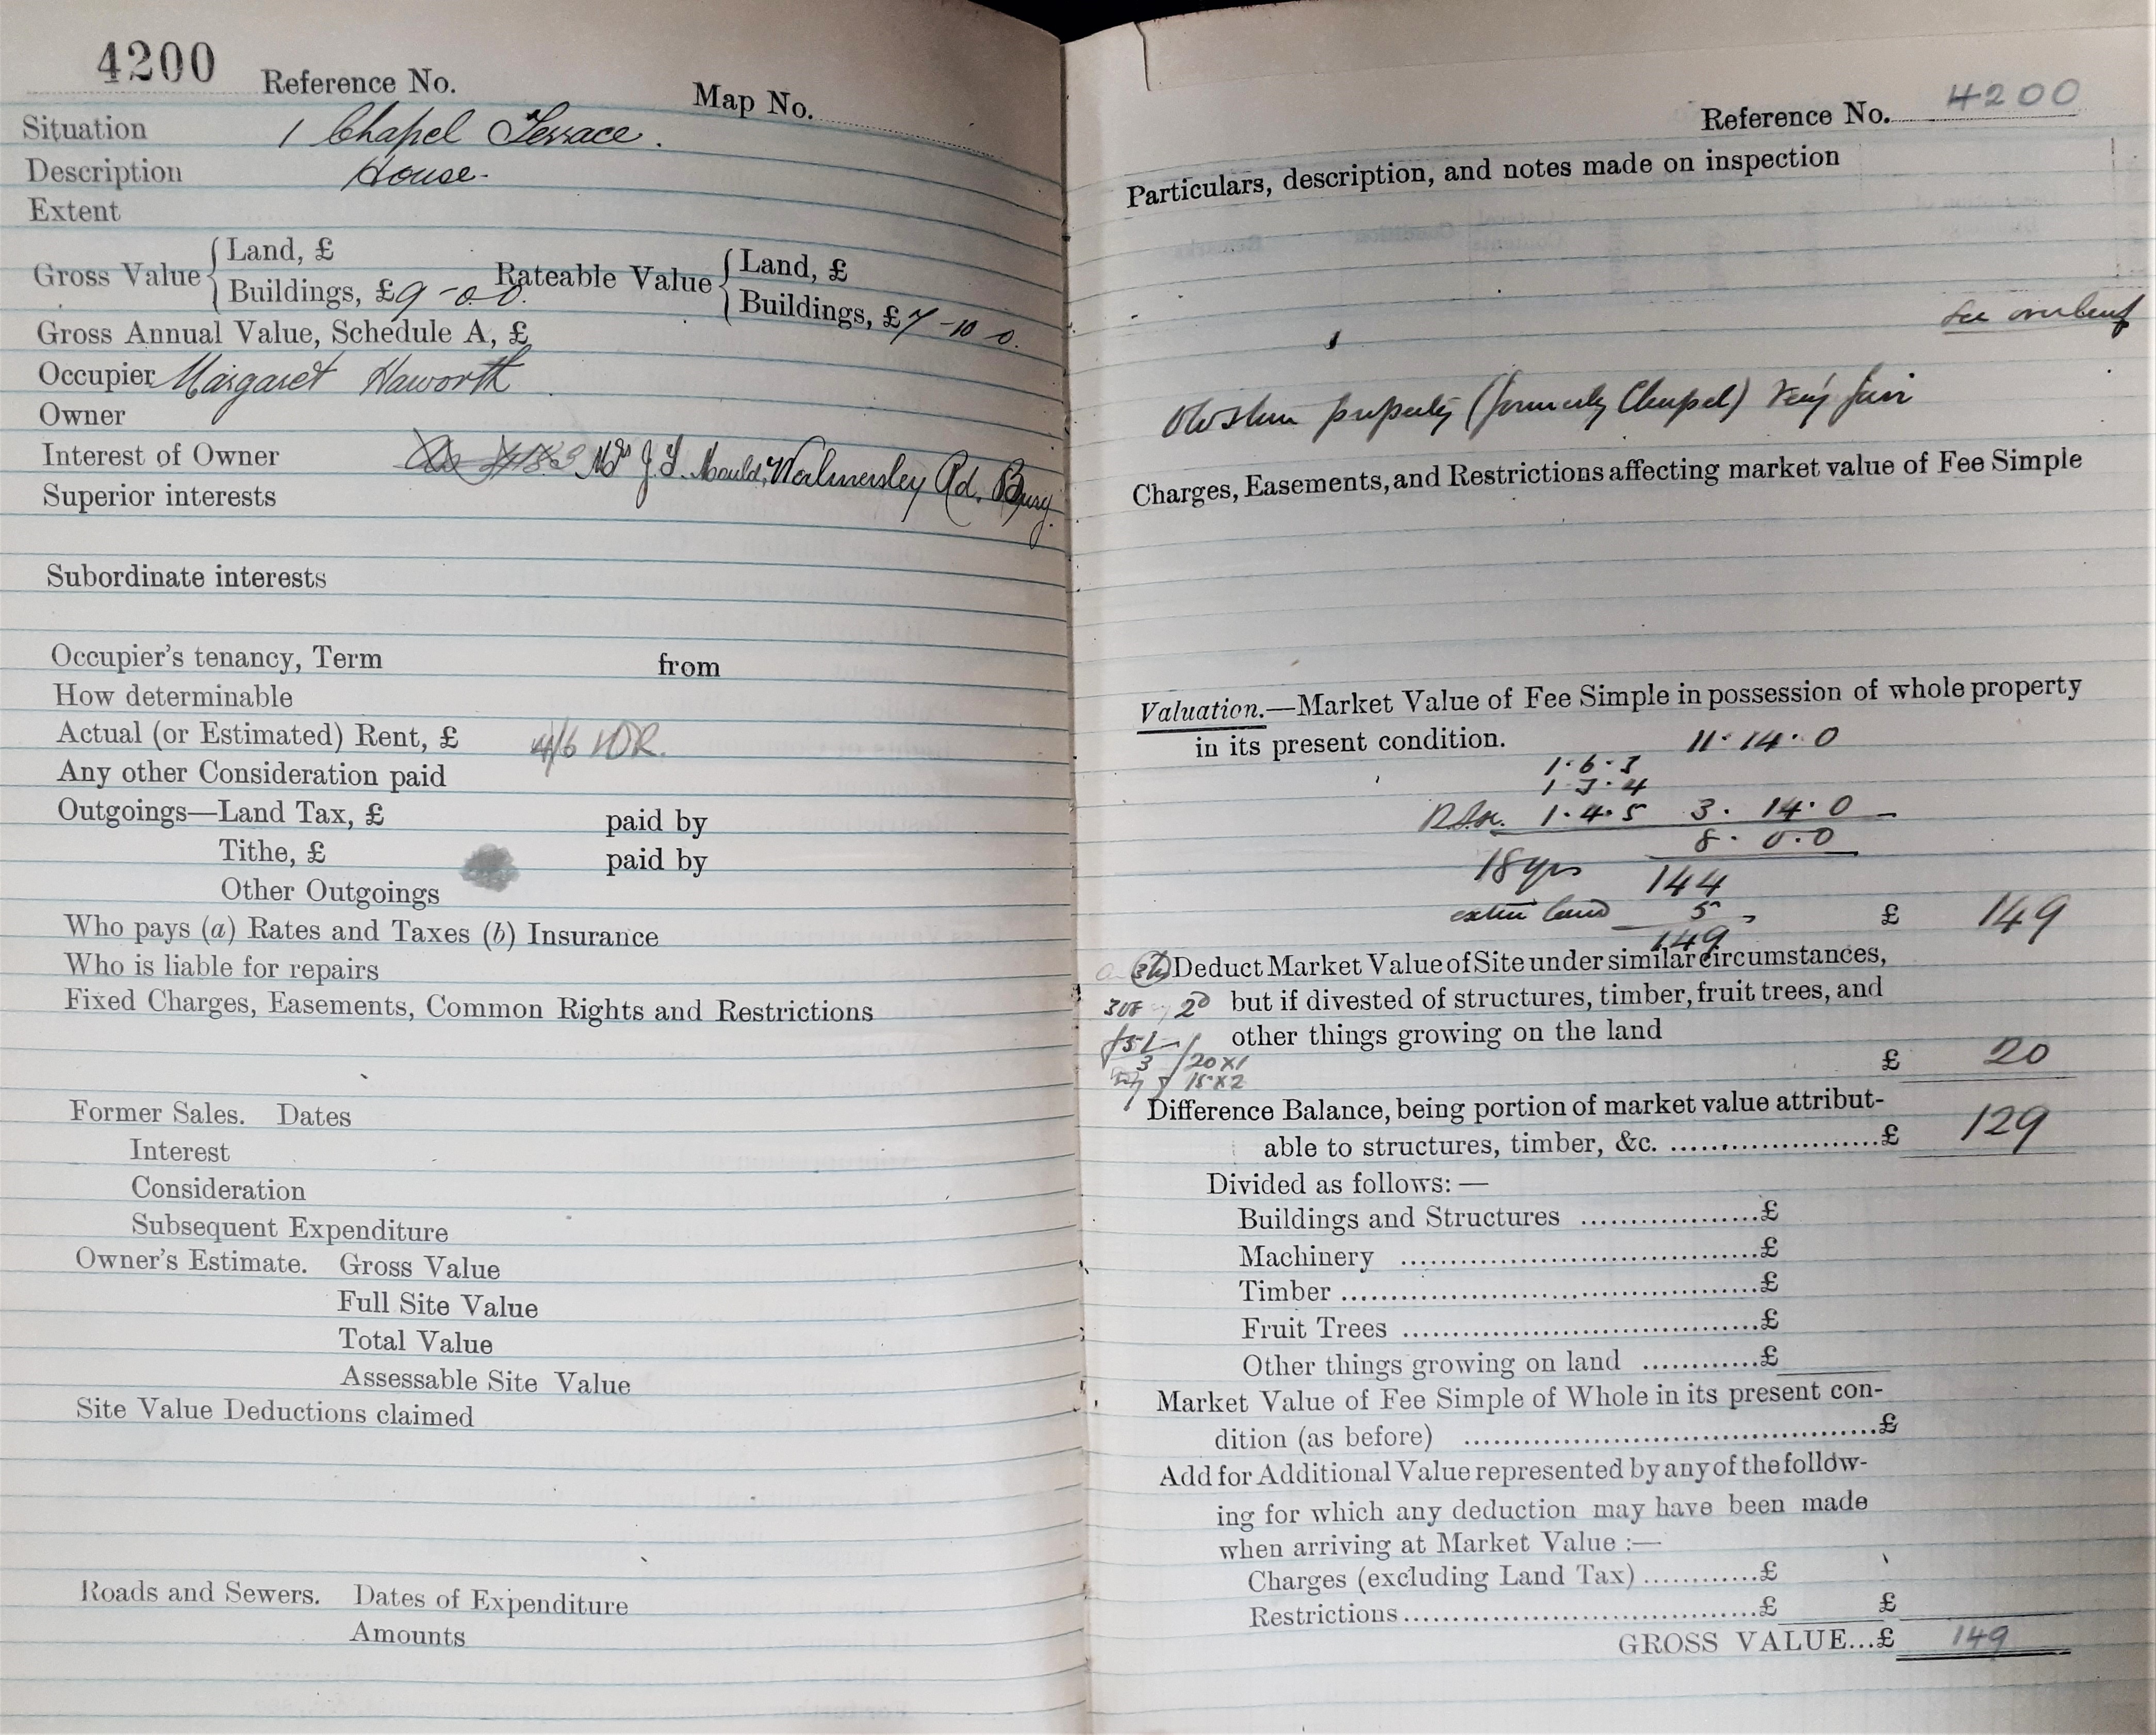 4200 Reference No. Map No.
Situation 1 Chapel Terrace.
Description House.
Extent
Gross Value { Land, £ Rateable Value { Land, £
Buildings, £ 9-0-0. Buildings, £ 7-10 0.
Gross Annual Value, Schedule A, £
Occupier Margaret Haworth
Owner
Interest of Owner Mrs J. Mould, Walmersley Rd. Bury.
Superior interests
Subordinate interests
Occupier's tenancy, Term from
How determinable
Actual (or Estimated) Rent, £ 4/6 LDR.
Any other Consideration paid
Outgoings—Land Tax, £ paid by
Tithe, £ paid by
Other Outgoings
Who pays (a) Rates and Taxes (b) Insurance
Who is liable for repairs
Fixed Charges, Easements, Common Rights and Restrictions
Former Sales. Dates
Interest
Consideration
Subsequent Expenditure
Owner's Estimate. Gross Value
Full Site Value
Total Value
Assessable Site Value
Site Value Deductions claimed
Roads and Sewers. Dates of Expenditure
Amounts
Reference No. 4200
Particulars, description, and notes made on inspection
See overleaf
property (formerly Chapel) Very fair
Charges, Easements, and Restrictions affecting market value of Fee Simple
Valuation.—Market Value of Fee Simple in possession of whole property
in its present condition. 11·14·0
1·6·3
1·3·4
1·4·5 3·14·0
8·0·0
18 yrs 144
extra land 5
£ 149
149
Deduct Market Value of Site under similar circumstances,
but if divested of structures, timber, fruit trees, and
other things growing on the land
20 X 1
15 X 2
£ 20
Difference Balance, being portion of market value attribut-
able to structures, timber, &c. ....................£ 129
Divided as follows:—
Buildings and Structures ..................£
Machinery ....................................£
Timber ..........................................£
Fruit Trees ....................................£
Other things growing on land ............£
Market Value of Fee Simple of Whole in its present con-
dition (as before) ..........................................£
Add for Additional Value represented by any of the follow-
ing for which any deduction may have been made
when arriving at Market Value :—
Charges (excluding Land Tax) ............£
Restrictions....................................£ £
GROSS VALUE...£ 149